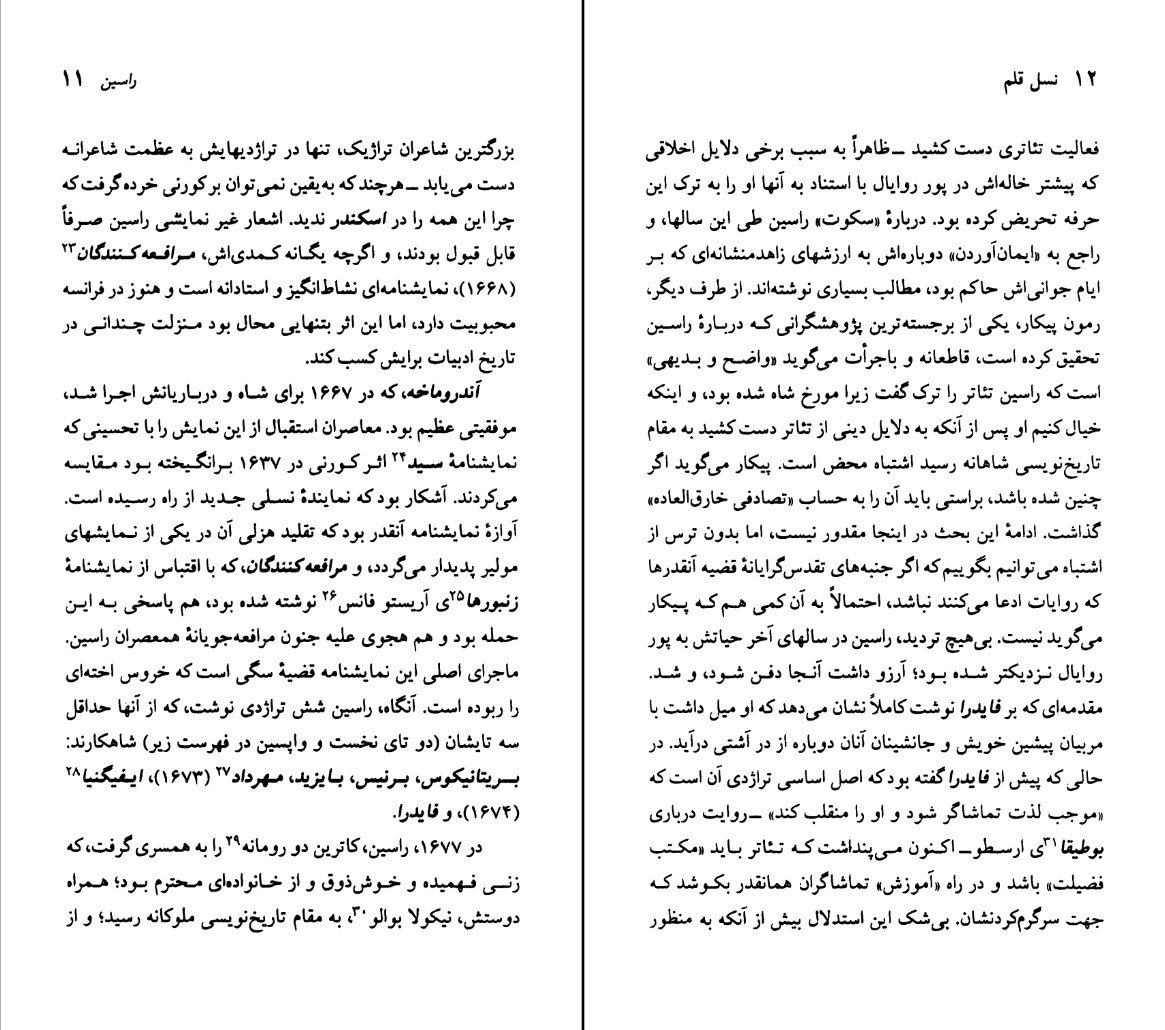 راسین ۱۱
بزرگترین شاعران تراژیک، تنها در تراژدیهایش به عظمت شاعرانه
دست می‌یابد ــ هرچند که به‌یقین نمی‌توان بر کورنی خرده گرفت که
چرا این همه را در اسکندر ندید. اشعار غیر نمایشی راسین صرفاً
قابل قبول بودند، و اگرچه یگانه کمدی‌اش، مرافعه‌کنندگان۲۳
(۱۶۶۸)، نمایشنامه‌ای نشاط‌انگیز و استادانه است و هنوز در فرانسه
محبوبیت دارد، اما این اثر بتنهایی محال بود منزلت چندانی در
تاریخ ادبیات برایش کسب کند.
آندروماخه، که در ۱۶۶۷ برای شاه و درباریانش اجرا شد،
موفقیتی عظیم بود. معاصران استقبال از این نمایش را با تحسینی که
نمایشنامهٔ سید۲۴ اثر کورنی در ۱۶۳۷ برانگیخته بود مقایسه
می‌کردند. آشکار بود که نمایندهٔ نسلی جدید از راه رسیده است.
آوازهٔ نمایشنامه آنقدر بود که تقلید هزلی آن در یکی از نمایشهای
مولیر پدیدار می‌گردد، و مرافعه‌کنندگان، که با اقتباس از نمایشنامهٔ
زنبورها۲۵ی آریستو فانس۲۶ نوشته شده بود، هم پاسخی به این
حمله بود و هم هجوی علیه جنون مرافعه‌جویانهٔ همعصران راسین.
ماجرای اصلی این نمایشنامه قضیهٔ سگی است که خروس اخته‌ای
را ربوده است. آنگاه، راسین شش تراژدی نوشت، که از آنها حداقل
سه تایشان (دو تای نخست و واپسین در فهرست زیر) شاهکارند:
بریتانیکوس، برنیس، بایزید، مهرداد۲۷ (۱۶۷۳)، ایفیگنیا۲۸
(۱۶۷۴)، و فایدرا.
در ۱۶۷۷، راسین، کاترین دو رومانه۲۹ را به همسری گرفت، که
زنی فهمیده و خوش‌ذوق و از خانواده‌ای محترم بود؛ همراه
دوستش، نیکولا بوالو۳۰، به مقام تاریخ‌نویسی ملوکانه رسید؛ و از
۱۲ نسل قلم
فعالیت تئاتری دست کشید ــ ظاهراً به سبب برخی دلایل اخلاقی
که پیشتر خاله‌اش در پور روایال با استناد به آنها او را به ترک این
حرفه تحریض کرده بود. دربارهٔ «سکوت» راسین طی این سالها، و
راجع به «ایمان‌آوردن» دوباره‌اش به ارزشهای زاهدمنشانه‌ای که بر
ایام جوانی‌اش حاکم بود، مطالب بسیاری نوشته‌اند. از طرف دیگر،
رمون پیکار، یکی از برجسته‌ترین پژوهشگرانی که دربارهٔ راسین
تحقیق کرده است، قاطعانه و باجرأت می‌گوید «واضح و بدیهی»
است که راسین تئاتر را ترک گفت زیرا مورخ شاه شده بود، و اینکه
خیال کنیم او پس از آنکه به دلایل دینی از تئاتر دست کشید به مقام
تاریخ‌نویسی شاهانه رسید اشتباه محض است. پیکار می‌گوید اگر
چنین شده باشد، براستی باید آن را به حساب «تصادفی خارق‌العاده»
گذاشت. ادامهٔ این بحث در اینجا مقدور نیست، اما بدون ترس از
اشتباه می‌توانیم بگوییم که اگر جنبه‌های تقدس‌گرایانهٔ قضیه آنقدرها
که روایات ادعا می‌کنند نباشد، احتمالاً به آن کمی هم که پیکار
می‌گوید نیست. بی‌هیچ تردید، راسین در سالهای آخر حیاتش به پور
روایال نزدیکتر شده بود؛ آرزو داشت آنجا دفن شود، و شد.
مقدمه‌ای که بر فایدرا نوشت کاملاً نشان می‌دهد که او میل داشت با
مربیان پیشین خویش و جانشینان آنان دوباره از در آشتی درآید. در
حالی که پیش از فایدرا گفته بود که اصل اساسی تراژدی آن است که
«موجب لذت تماشاگر شود و او را منقلب کند» ــ روایت درباری
بوطیقا۳۱ی ارسطو ــ اکنون می‌پنداشت که تئاتر باید «مکتب
فضیلت» باشد و در راه «آموزش» تماشاگران همانقدر بکوشد که
جهت سرگرم‌کردنشان. بی‌شک این استدلال بیش از آنکه به منظور